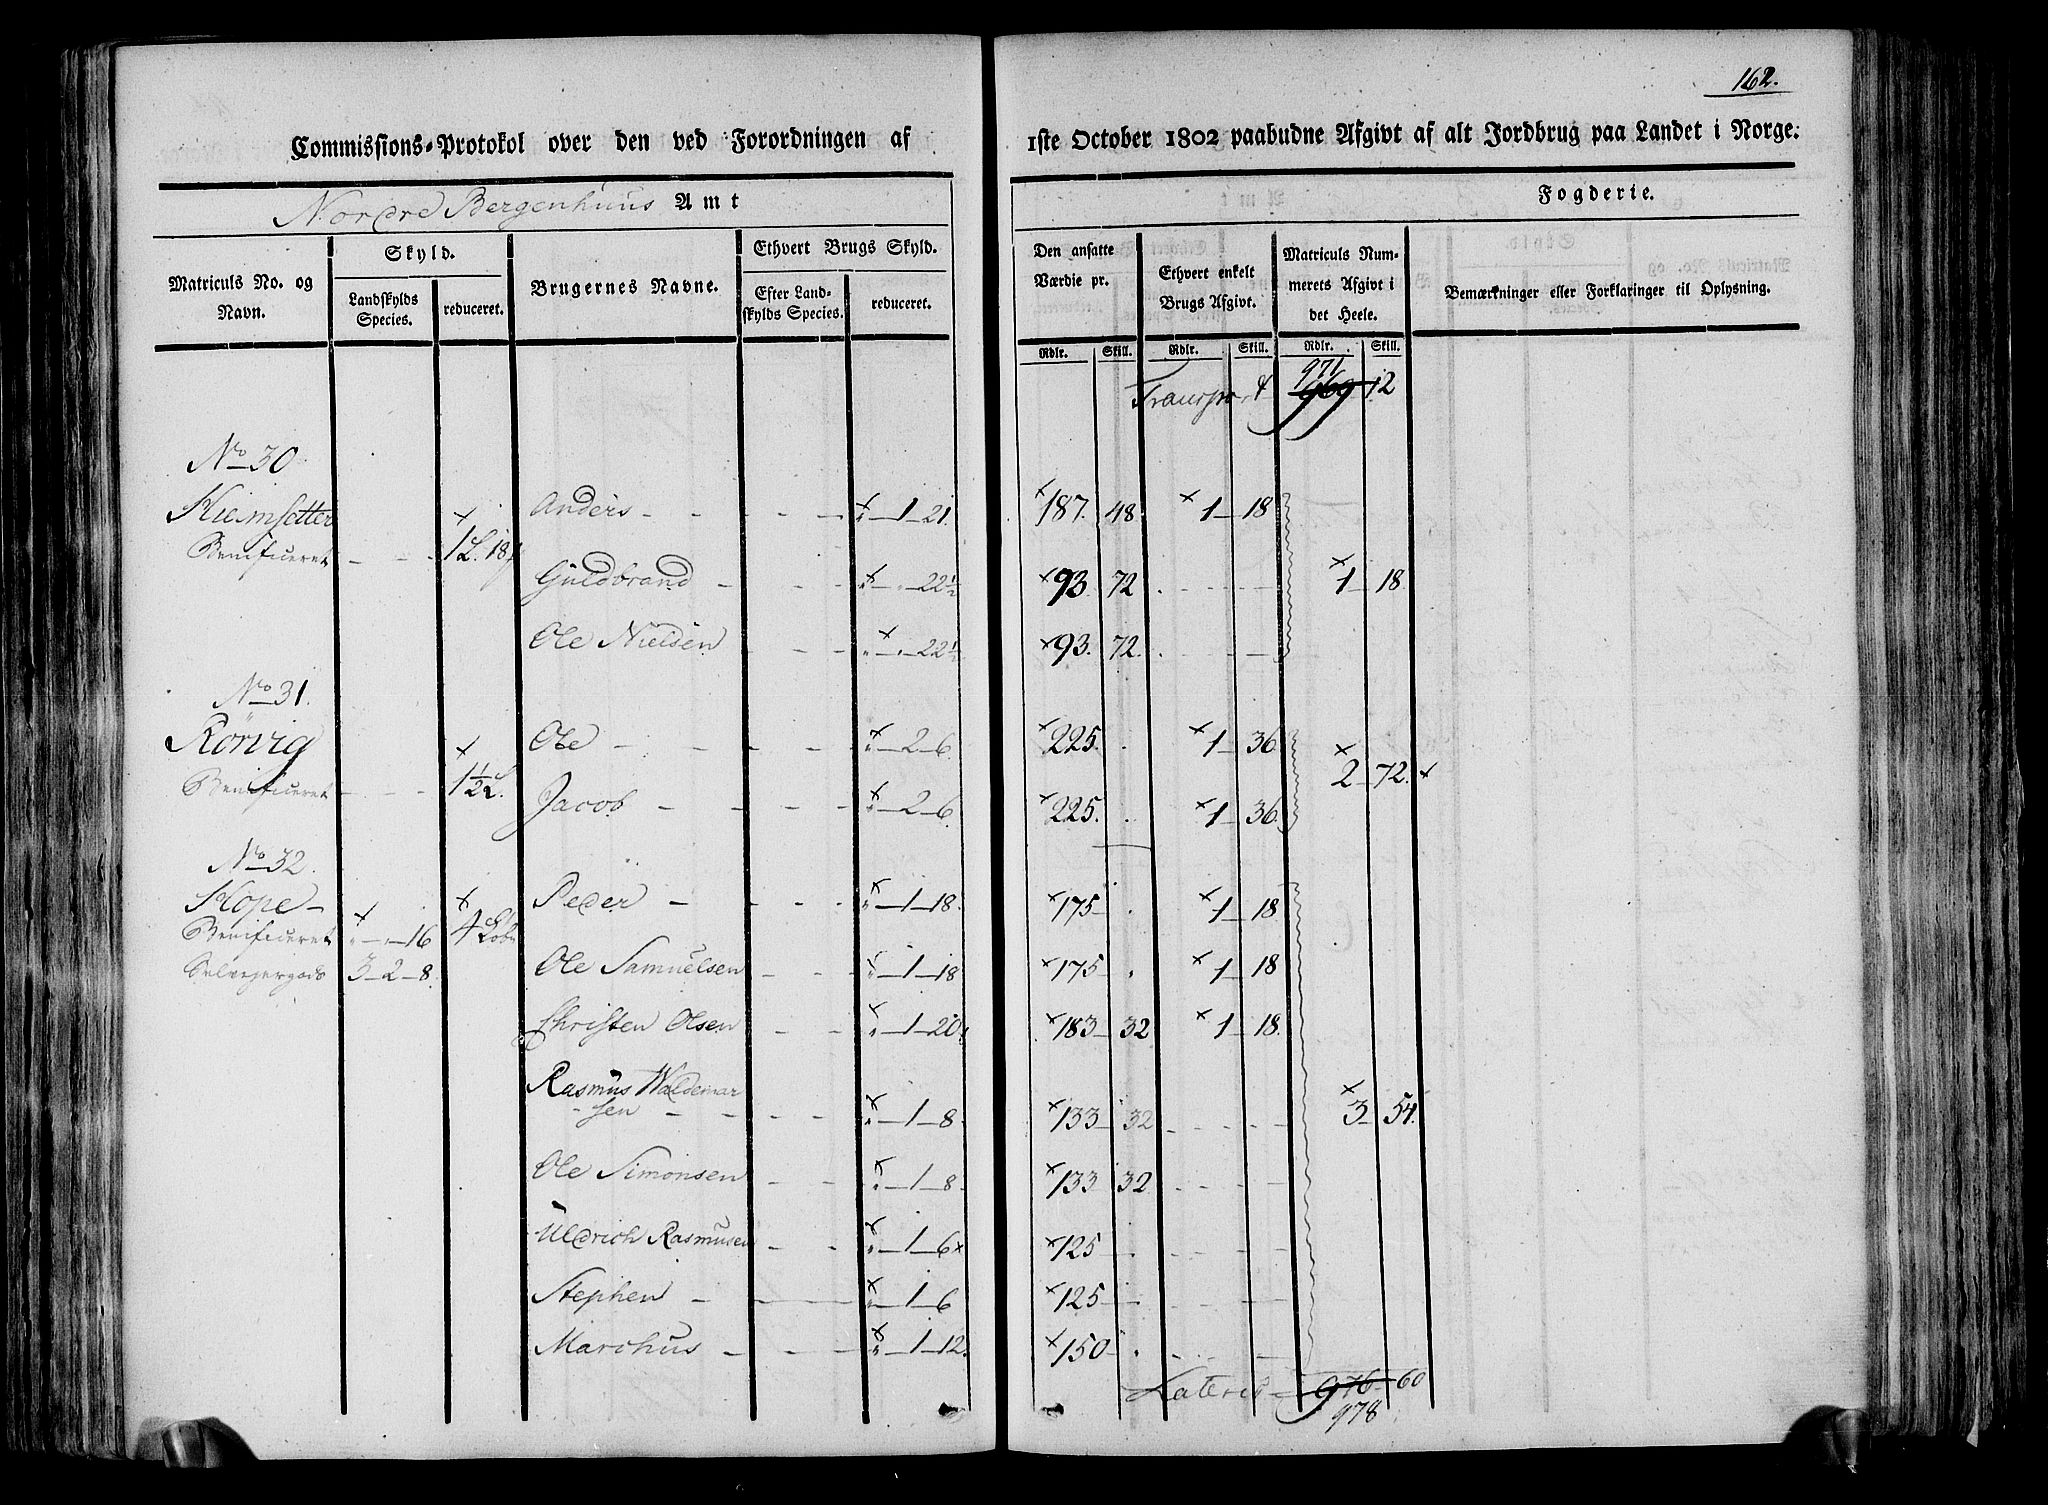 162.
Commissions-Protokol over den ved Forordningen af 1ste October 1802 paabudne Afgivt af alt Jordbrug paa Landet i Norge.
Nordre Bergenhuus Amt
Fogderie.
Matriculs No. og Navn.
Skyld.
Landskylds Species.
reduceret.
Brugernes Navne.
Ethvert Brugs Skyld.
Efter Landskylds Species.
reduceret.
Den ansatte Værdie pr.
Ethvert enkelt Brugs Afgivt.
Matriculs Nummerets Afgivt i det Heele.
Bemærkninger eller Forklaringer til Oplysning.
Rdlr. Skill. Rdlr. Skill. Rdlr. Skill.
Transport 971 969 12
No 30
Anders - - - - - " - 1 - 21. 187. 48 1 - 18
Benificeret - - - 1 L. 18
Guldbrand - - - " - " - 22½ 93. 72 . - - - - 1 - 18.
Ole Nielsen - - - " - " - 22½ 93. 72. . - - - -
No 31.
Rörvig
Ole - - - - - " - 2 - 6. 225. . 1 - 36
Benificeret - - - 1½ L. 2 - 72.
Jacob - - - - " - 2 - 6. 225. . 1 - 36.
No 32.
Hope -
Peder - - - - " - 1 - 18. 175 - . 1 - 18.
Benificeret " - " - 16 4
Selvejergods 3 - 2 - 8.
Ole Samuelsen - - - " - 1 - 18 175 - . 1 - 18
Christen Olsen - - " - 1 - 20. 183 - 32 1 - 18.
Rasmus Waldemar
- sen - - - - - " - 1 - 8. 133 - 32 - - - - - 3 - 54.
Ole Simonsen - - " - 1 - 8. 133 32. - - - -
Uldrich Rasmusen - - " - 1 - 6 125 - . - - - -
Stephen - - - " - 1 - 6 125 - - - - -
Marchus - - - " - 1 - 12. 150 - . - - - -
Lateris - 976 - 60
978